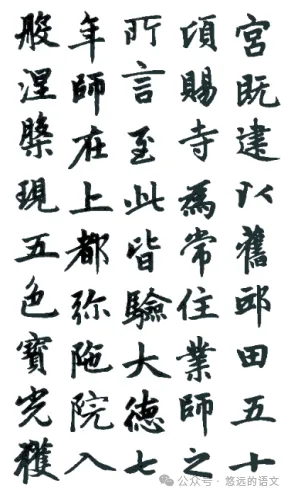 宮既建以舊邸田五十
頃賜寺為常住業師之
所言至此皆驗大德七
年師在上都弥陁院入
般涅槃現五色寶光獲
公众号·悠远的语文